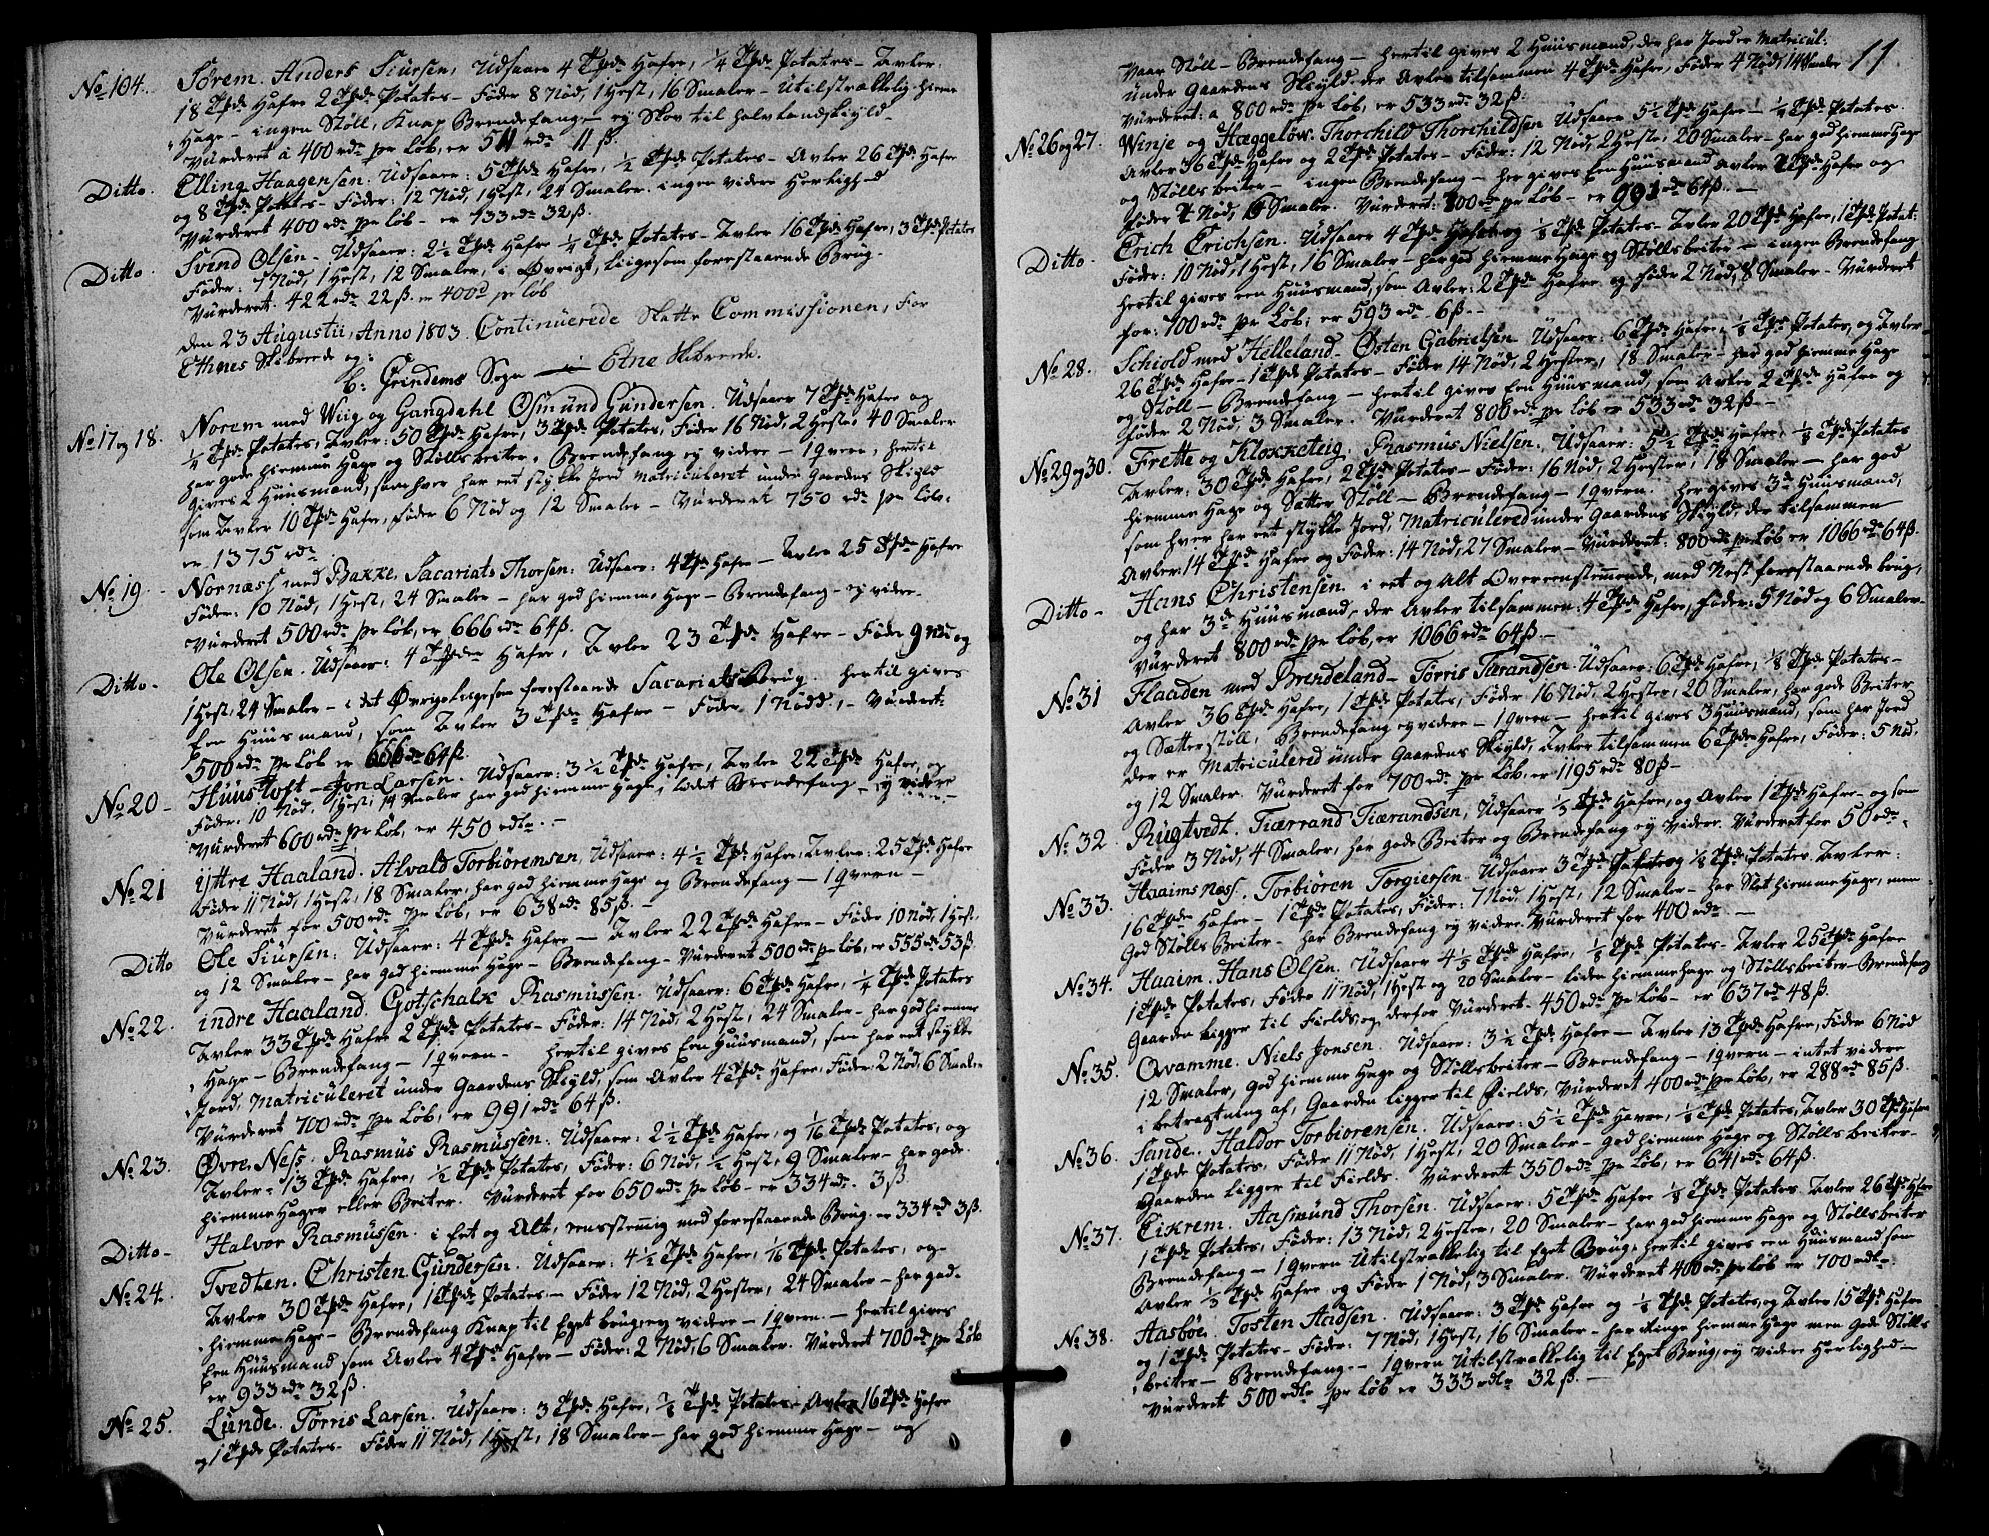 No 104. Sørem. Anders Siursen, Udsaaer 4 Tøndr Hafre, 1/4 Tøndr Potates - Avler:
18 Tøndr Hafre 2 Tøndr Potates - Føder 8 Nød, 1 Hest, 16 Smaler - Utilstrækkelig hieme
Hage - ingen Støll, Knap Brendefang - ej Skov til halv landskyld -
Vurderet à 400 rdr pr Løb, er 511 rdr 11 ß.
Ditto. Elling Haagensen. Udsaaer: 5 Tøndr Hafre, 1/2 Tøndr Potates - Avler 26 Tøndr Hafre
og 8 Tøndr Potates - Føder: 12 Nød, 1 Hest, 24 Smaler. ingen videre Herlighed
Vurderet 400 rdr pr Løb - er 733 rdr 32 ß.
Ditto. Svend Olsen - Udsaaer: 2 1/2 Tøndr Hafre Potates - Avler 16 Tøndr Hafre, 3 Tøndr Potates
Føder: 7 Nød, 1 Hest, 12 Smaler, i Øvrigt, liigesom forestaaende Brug.
Vurderet. 422 rdr 22 ß. er 400 d pr Løb
Den 23 Augustii, Anno 1803. Continuerede Skatte Commissionen, for
Ethnes Skibrede og:
b: Grindems Sogn i Etne Skibrede.
No 17 og 18. Norem med Wiig og Gangdahl Osmund Gundersen. Udsaaer 7 Tøndr Hafre og
1/4 Tøndr Potates, Avler: 50 Tøndr Hafre, 3 Tøndr Potates, Føder 16 Nød, 2 Heste, 40 Smaler
har gode hiemme Hage og Støllsbeiter, Brendefang ej videre - 1 qvern, hertil
gives 2 Huusmænd, som hver har eet stykke Jord matriculeret under Gaardens Skyld
som Avler 10 Tøndr Hafre, Føder 6 Nød og 12 Smaler - Vurderet 750 rdr pr Løb.
er 1375 rdr
No 19. Nornæss med Bakke, Sacarias Thorsen. Udsaaer: 4 Tøndr Hafre - Avler 25 Tøndr Hafre
Føder: 10 Nød, 1 Hest, 24 Smaler - har god hiemme Hage - Brendefang - ej videre.
Vurderet 500 rdr pr Løb, er 666 rdr 64 ß.
Ditto. Ole Olsen. Udsaaer: 4 Tøndr Hafre, Avler 23 Tøndr Hafre - Føder 9 Nød og
1 Hest, 24 Smaler - i det Øvrige liigesom forestaaende Sacariases Brug. hertil gives
Een Huusmand, som Avler 3 Tøndr Hafre - Føder 1 Nødd, - Vurderet
500 rdr pr Løb er 666 rdr 64 ß.
No 20 - Huustoft - Jon Larsen. Udsaaer: 3 1/2 Tøndr Hafre, Avler 22 Tøndr Hafre, og
Føder. 10 Nød, 1 Hest, 14 Smaler har god hiemme Hage, lidet Brendefang - ej videre
Vurderet 600 rdr pr Løb, er 450 rdlr. -
No 21 Yttre Haaland. Alvald Torbiørensen, Udsaaer: 4 1/2 Tøndr Hafre, Avler: 25 Tøndr Hafre
Føder 11 Nød, 1 Hest, 18 Smaler, har god hiemme Hage og Brendefang - 1 qvern -
Vurderet for 500 rdr pr Løb, er 638 rdr 85 ß. -
Ditto Ole Siursen: Udsaaer: 4 Tøndr Hafre - Avler 22 Tøndr Hafre - Føder 10 Nød, 1 Hest,
og 12 Smaler - har god hiemme Hage - Brendefang - Vurderet 500 rdr pr Løb, er 555 rdr 53 ß.
No 22. indre Haaland. Gotschalk Rasmussen. Udsaaer: 6 Tøndr Hafre, 1/4 Tøndr Potates
Avler 33 Tøndr Hafre 2 Tøndr Potates - Føder: 14 Nød, 2 Heste, 24 Smaler - har god hiemme
Hage - Brendefang - 1 qvern - hertil gives Een Huusmand, som har eet stykke
Jord, Matriculeret under Gaardens Skyld, som Avler 4 Tøndr Hafre, Føder 2 Nød, 6 Smaler
Vurderet 700 rdr pr Løb, er 991 rdr 64 ß.
No 23. Øvre Ness. Rasmus Rasmussen. Udsaaer: 2 1/2 Tøndr Hafre, og 1/16 Tøndr Potates, og
Avler - 13 Tøndr Hafre, 1/2 Tøndr Potates, Føder: 6 Nød, 1/2 Hest, 9 Smaler - har gode
hiemme Hager eller Beiter. Vurderet for 650 rdr pr Løb - er 334 rdr. 3 ß.
Ditto - Halvor Rasmussen. i Eet og Alt, eensstemig med forestaaende Brug. er 334 rdr 3 ß.
No 24. Tvedten. Christen Gundersen. Udsaaer: 4 1/2 Tøndr Hafre, 1/16 Tøndr Potates, og
Avler 30 Tøndr Hafre, 1 Tøndr Potates - Føder 12 Nød, 2 Hester, 24 Smaler - har god
hiemme Hage - Brendefang Knap til Eget brug, ej videre - 1 qvern - hertil gives
Een Huusmand som Avler 4 Tøndr Hafre - Føder: 2 Nød, 6 Smaler. Vurderet 700 rdr pr Løb
er 933 rdr 32 ß.
No 25. Lunde. Tørris Larsen. Udsaaer: 3 Tøndr Hafre, 1/8 Tøndr Potates, Avler 16 Tøndr Hafre
og 1 Tøndr Potates - Føder 11 Nød, 1 Hest, 18 Smaler - har god hiemme Hage - og
11
Vaar Støll - Brendefang - hertil gives 2 Huusmænd, der har Jorder Matricul:
under Gaardens Skyld, der Avler tilsammen 4 Tøndr Hafre, Føder 4 Nød, 14 Smaler
Vurderet: a 800 rdr pr Løb, er 533 rdr 32 ß.
No 26 og 27. Winje og Hæggeløw. Thorchild Thorchildsen Udsaaer 5 1/2 Tøndr Hafre 1/4 Tøndr Potates.
Avler 36 Tøndr Hafre og 2 Tøndr Potates - Føder: 12 Nød, 2 Heste, 20 Smaler - har god hiemme Hage
og Støllsbeiter - ingen Brendefang - her gives Een Huusmand Avler Tøndr Hafre og
Føder Nød, Smaler. Vurderet: 700 rdr pr Løb - er 991 rdr 64 ß. -
Ditto. Erich Erichsen. Udsaaer 4 Tøndr Hafre og 1/8 Tøndr Potates - Avler 20 Tøndr Hafre, 1 Tøndr Potat:
Føder: 10 Nød, 1 Hest, 16 Smaler - har god hiemme Hage og Støllsbeiter - ingen Brendefang
hertil gives een Huusmand, som Avler: 2 Tøndr Hafre og føder 2 Nød, 8 Smaler - Vurderet
for: 700 rdr pr Løb, er 593 rdr 6 ß. -
No 28. Schiold med Helleland - Østen Gabrielsen Udsaaer: 6 Tøndr Hafre, 1/8 Tøndr Potates, og Avler
26 Tøndr Hafre - 1 Tøndr Potates - Føder 14 Nød, 2 Hester, 18 Smaler - har god hiemme Hage
og Støll - Brendefang - hertil gives Een Huusmand, som Avler 2 Tøndr Hafre og
Føder 2 Nød, 3 Smaler. Vurderet 800 rdr pr Løb er 533 rdr 32 ß. -
No 29 og 30. Frette og Klokketeig, Rasmus Nielsen. Udsaaer: 5 1/2 Tøndr Hafre, 1/8 Tøndr Potates
Avler: 30 Tøndr Hafre, 2 Tøndr Potates - Føder: 16 Nød, 2 Hester, 18 Smaler - har god
hiemme Hage og Sætter Støll - Brendefang - 1 qvern. her gives 3de Huusmænd,
som hver har eet stykke Jord, Matriculered under Gaardens Skyld, der tilsammen
Avler: 14 Tøndr Hafre og Føder: 14 Nød, 27 Smaler - Vurderet: 800 rdr pr Løb er 1066 rdr 64 ß.
Ditto - Hans Christensen. i eet og Alt Overeenstemende, med Nest forestaaende brug,
og har 3de Huusmænd, der Avler tilsammen: 4 Tøndr Hafre, Føder: 5 Nød og 6 Smaler.
Vurderet 800 rdr pr Løb, er 1066 rdr 64 ß. -
No 31 Flaaden med Brendeland - Torris Tærandsen - Udsaaer: 6 Tøndr Hafre, 1/8 Tøndr Potates -
Avler 36 Tøndr Hafre, 1 Tøndr Potates, Føder 16 Nød, 2 Hester, 20 Smaler, har gode Beiter
og Sætterstøll, Brendefang ej videre - 1 qvern - hertil gives 3 Huusmænd, som har Jord
der er Matriculered under Gaardens Skyld, Avler tilsammen 6 Tøndr Hafre, Føder: 5 Nød,
og 12 Smaler. Vurderet for 700 rdr pr Løb, er 1195 rdr 80 ß -
No 32 Rugtvedt. Tiærrand Tiærandsen, Udsaaer Tøndr Hafre, og Avler 1 Tøndr Hafre - og som
Føder 3 Nød, 4 Smaler, har gode Beiter og Brendefang ej videre. Vurderet for 50 rdr.
No 33. Haaimsnæss. Torbiøren Torgiersen. Udsaaer 3 Tøndr 1/8 Tøndr Potates. Avler:
16 Tøndr Hafre - 1 Tøndr Potates, Føder: 7 Nød, 1 Hest, 12 Smaler - har Slet hiemme Hage, men
God Stølls Beiter - har Brendefang ej videre. Vurderet for 400 rdr. -
No 34. Haaim. Hans Olsen. Udsaaer 4 1/2 Tøndr Hafre, 1/8 Tøndr Potates - Avler 25 Tøndr Hafre
1 Tøndr Potates, Føder 11 Nød, 1 Hest og 20 Smaler - liden hiemme Hage og Støllsbeiter - Brendefang
Gaarden Ligger til Fields og derfor Vurderet. 450 rdr pr Løb - er 637 rdr 48 ß.
No 35. Qvamme. Niels Jonsen. Udsaaer: 3 1/2 Tøndr Hafre - Avler 13 Tøndr Hafre, Føder 6 Nød
12 Smaler, god hiemme Hage og Støllsbeiter - Brendefang - 1 qvern - intet videre
i betragtning af, Gaarden ligger til Fields, Vurderet 400 rdr pr Løb, er 288 rdr 85 ß.
No 36. Sande. Haldor Torbiorensen. Udsaaer: 5 1/2 Tøndr Havre, 1/8 Tøndr Potates, Avler 30 Tøndr Hafre
1 Tøndr Potates, Føder 11 Nød, 1 Hest, 20 Smaler - god hiemme Hage og Støllsbeiter -
Gaarden Ligger til Fields. Vurderet 350 rdr pr Løb, er 641 rdr 64 ß.
No 37. Eikrem. Aasmund Thorsen. Udsaaer: 5 Tøndr Hafre 1/8 Tøndr Potates. Avler 26 Tøndr Hafre
1 Tøndr Potates, Føder: 13 Nød, 2 Hester, 20 Smaler - har god hiemme Hage og Støllsbeiter
Brendefang - 1 qvern Utilstrækkelig til Eget Brug, hertil gives een Huusmand som
Avler 1/2 Tøndr Hafre og Føder 1 Nød, 3 Smaler. Vurderet 400 rdr pr Løb er 700 rdlr.
No 38. Aasbøe. Tosten Aadsen. Udsaaer: 3 Tøndr Hafre og 1/8 Tøndr Potates, og Avler 15 Tøndr Hafre
og 1 Tøndr Potates - Føder: 7 Nød, 1 Hest, 16 Smaler - har Ringe hiemme Hage men God Stølls
beiter - Brendefang. - 1 qvern Utilstrækkelig til Eget Brug, ej videre Herlighed -
Vurderet 500 rdlr pr Løb er 333 rdlr 32 ß. -